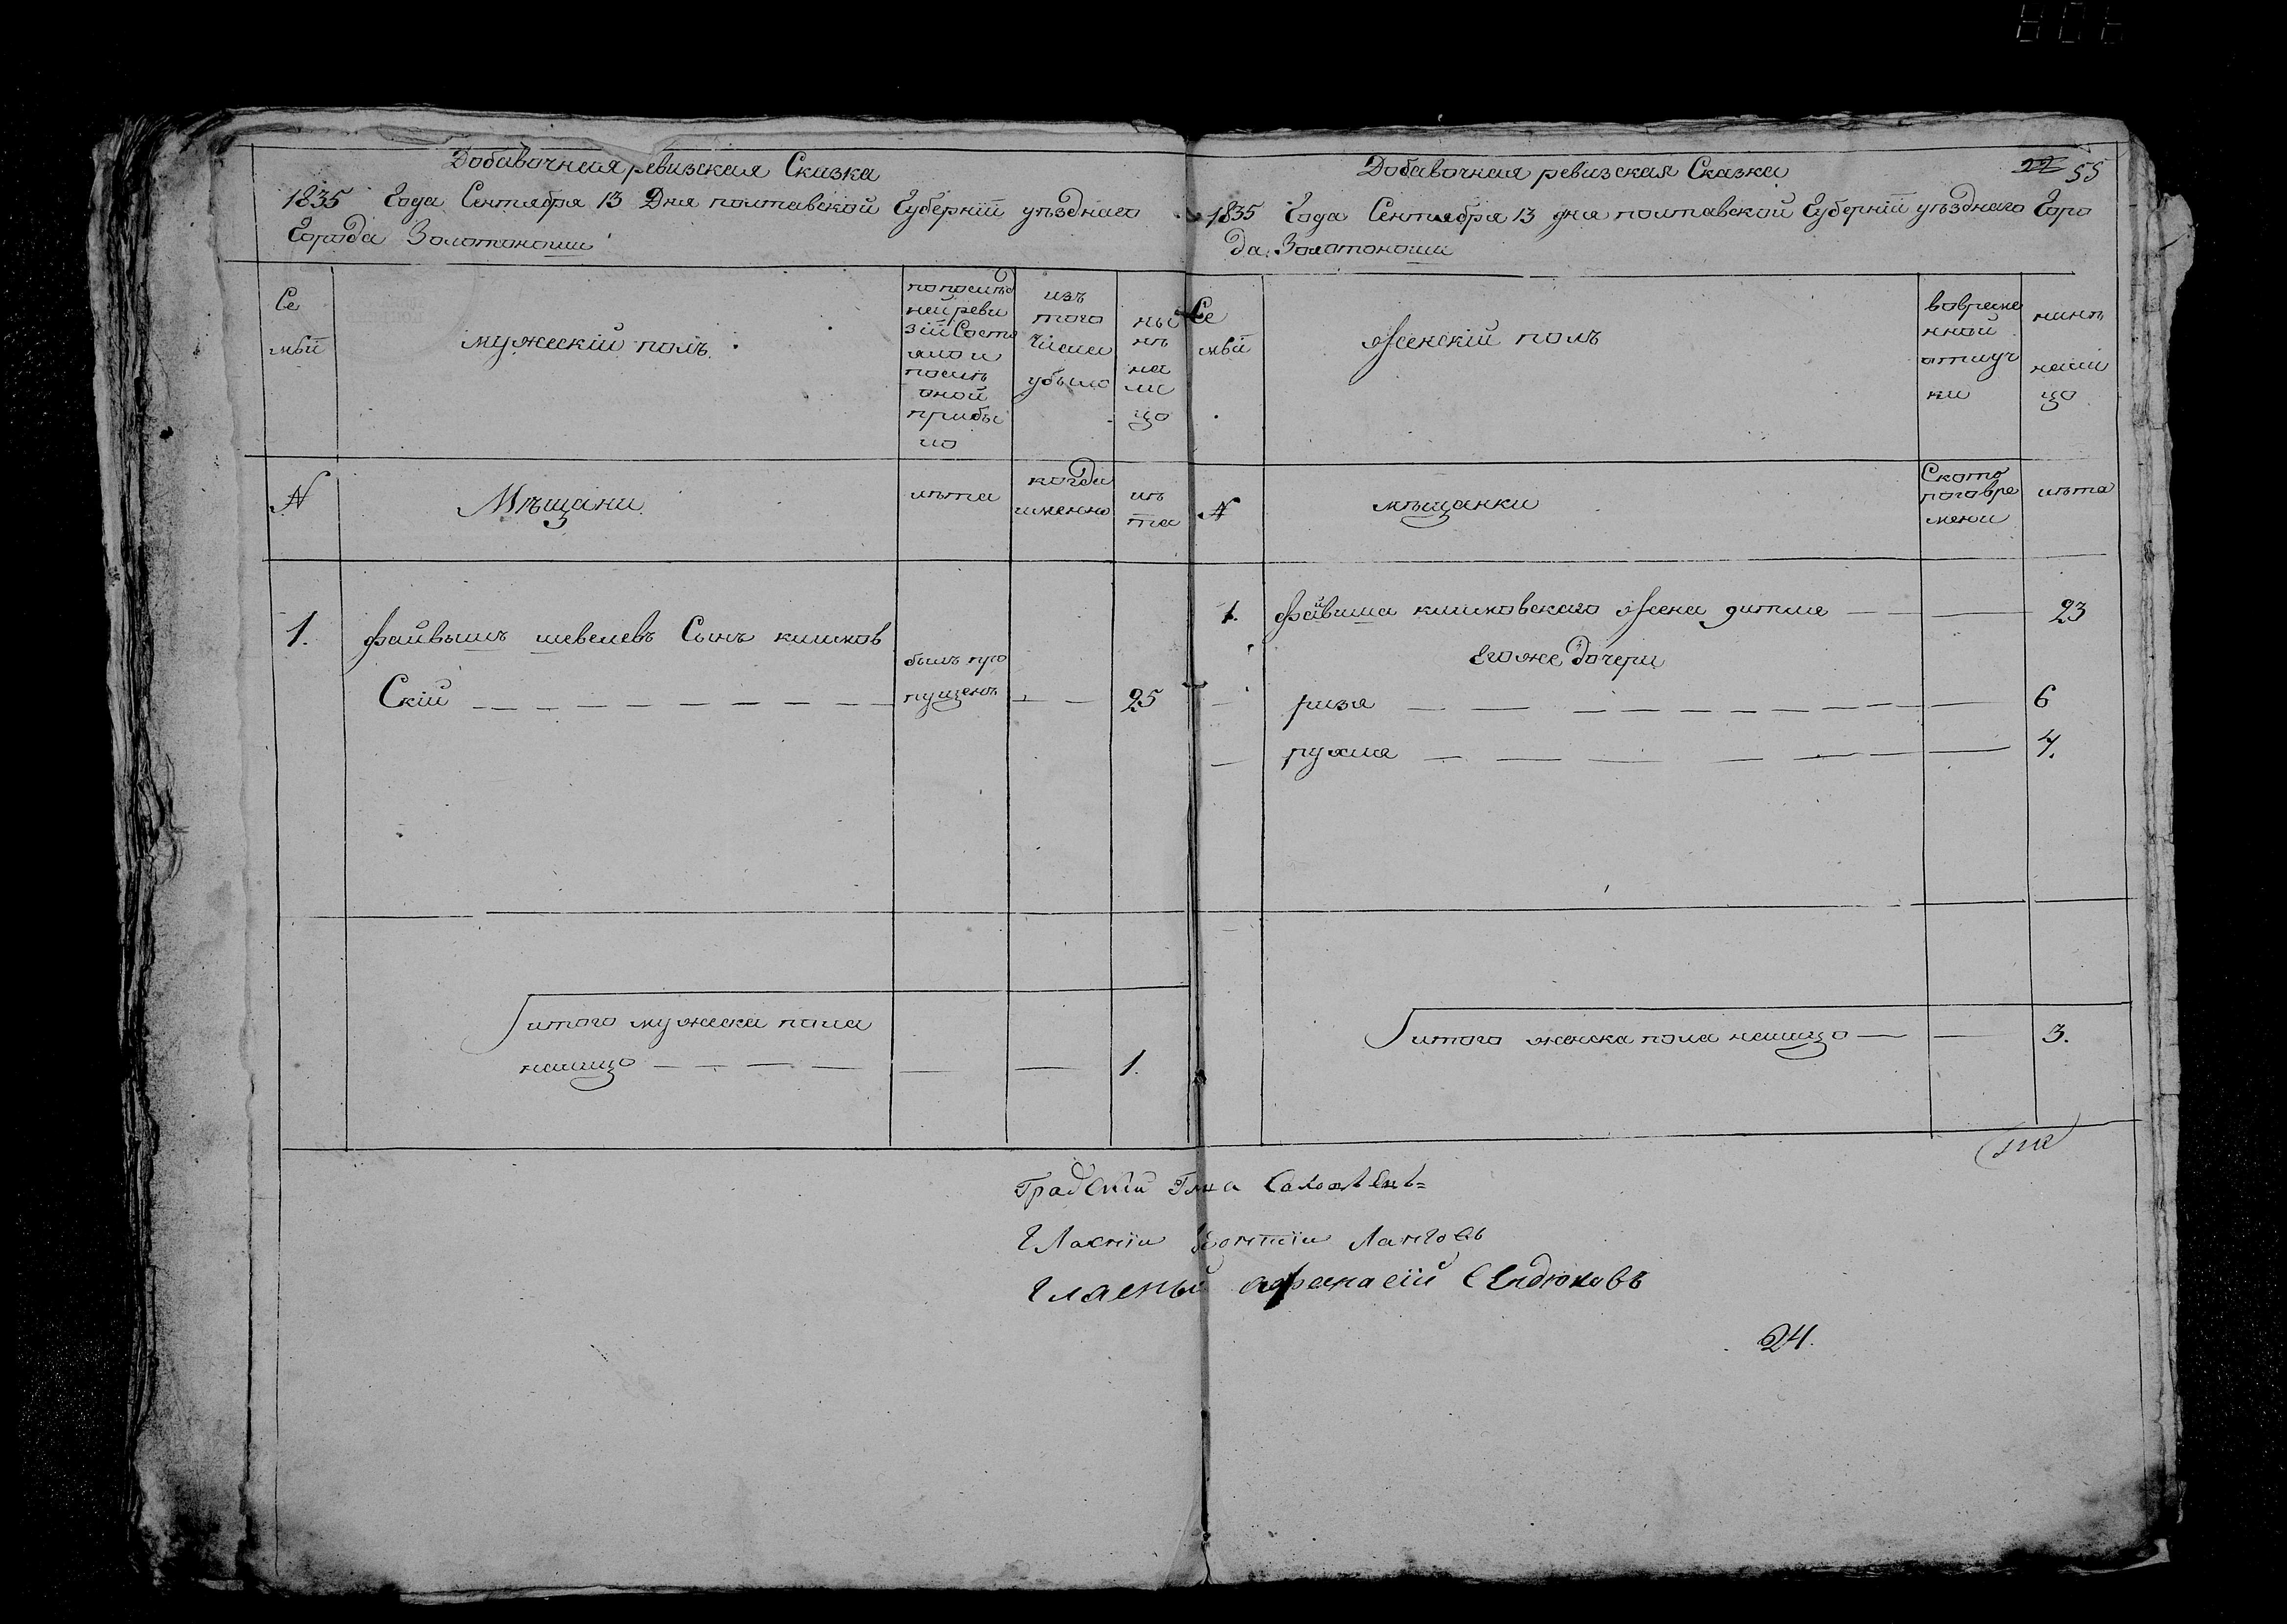 Добавочная ревизская Сказка
1835 Года Сентября 13 Дня полтавской Губернїи уѣзднаго
Города Золотоноши
Се
мьи
мужескїй полъ
по послѣд
ней реви
зїи Состо
яло и
послѣ
оной
прибы
ло
изъ
того
числа
убыло
ны
нѣ
на
ли
цо
№
Мѣщани
лѣта
когда
именно
лѣ
та
1. файвышъ шевелевъ Сынъ кишков
Скїй
былъ про
пущенъ
25
итого мужеска пола
налицо 1.
Добавочная ревизская Сказка
22 55
1835 Года Сентября 13 дня полтавской Губернїи уѣзднаго Горо
да Золотоноши
Се
мьи
Женскїй полъ
вовреме
нной
отлуч
ки
нинѣ
нали
цо
№
мѣщанки
Ското
поговре
мени
лѣта
1. файвиша кишковскаго Жена дитля 23
Егоже дочери
ризя 6
рухля 4.
итого женска пола налицо 3.
Градскїй Глава
Гласнїи
Гласный афанасїй Сендюковъ
24.